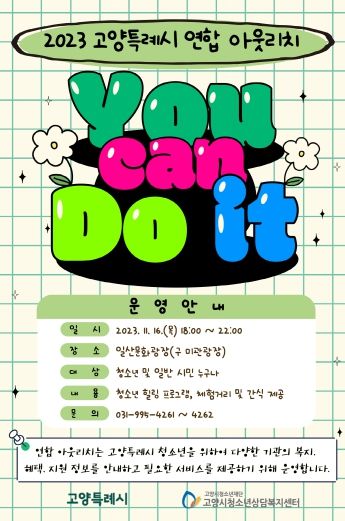 2023 고양특례시 연합 아웃리치
You
can
Do it
운영안내
일 시 2023. 11. 16.(목) 18:00 ~ 22:00
장 소 일산문화광장(구 미관광장)
대 상 청소년 및 일반 시민 누구나
내 용 청소년 힐링 프로그램, 체험거리 및 간식 제공
문 의 031-995-4261 ~ 4262
연합 아웃리치는 고양특례시 청소년을 위하여 다양한 기관의 복지,
혜택, 지원 정보를 안내하고 필요한 서비스를 제공하기 위해 운영합니다.
고양특례시
고양시청소년재단
고양시청소년상담복지센터